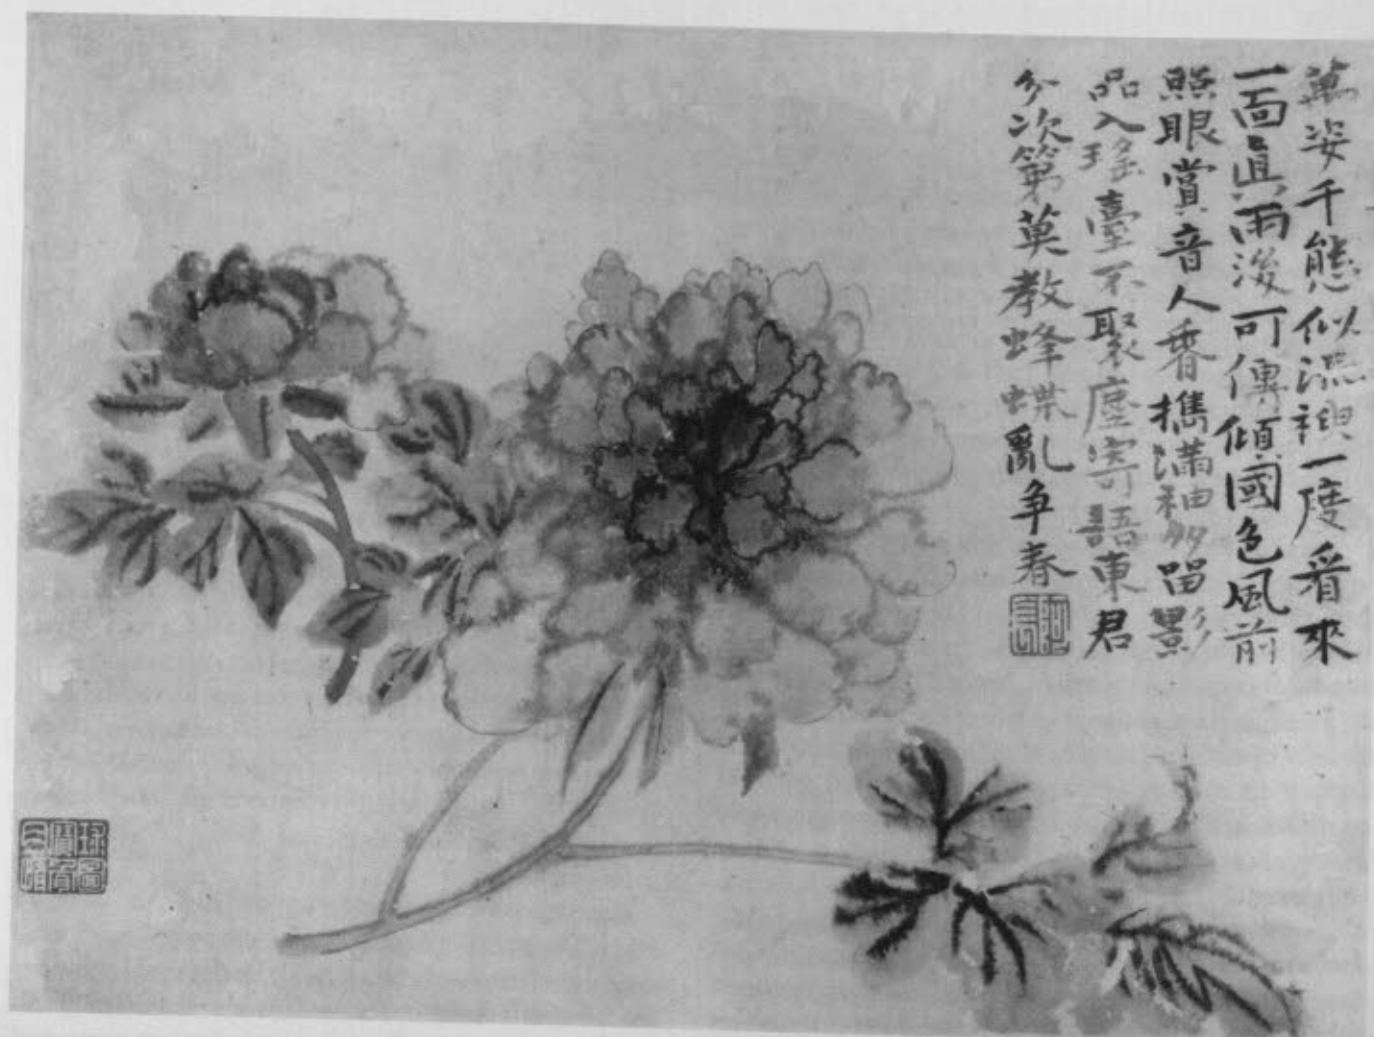 萬姿千態似流神一度看來
一面眞雨後可傳傾國色風前
照眼賞音人香攜滿袖多留影
品入瑤臺不聚塵寄語東君
分次第莫教蜂蝶亂爭春
阿長